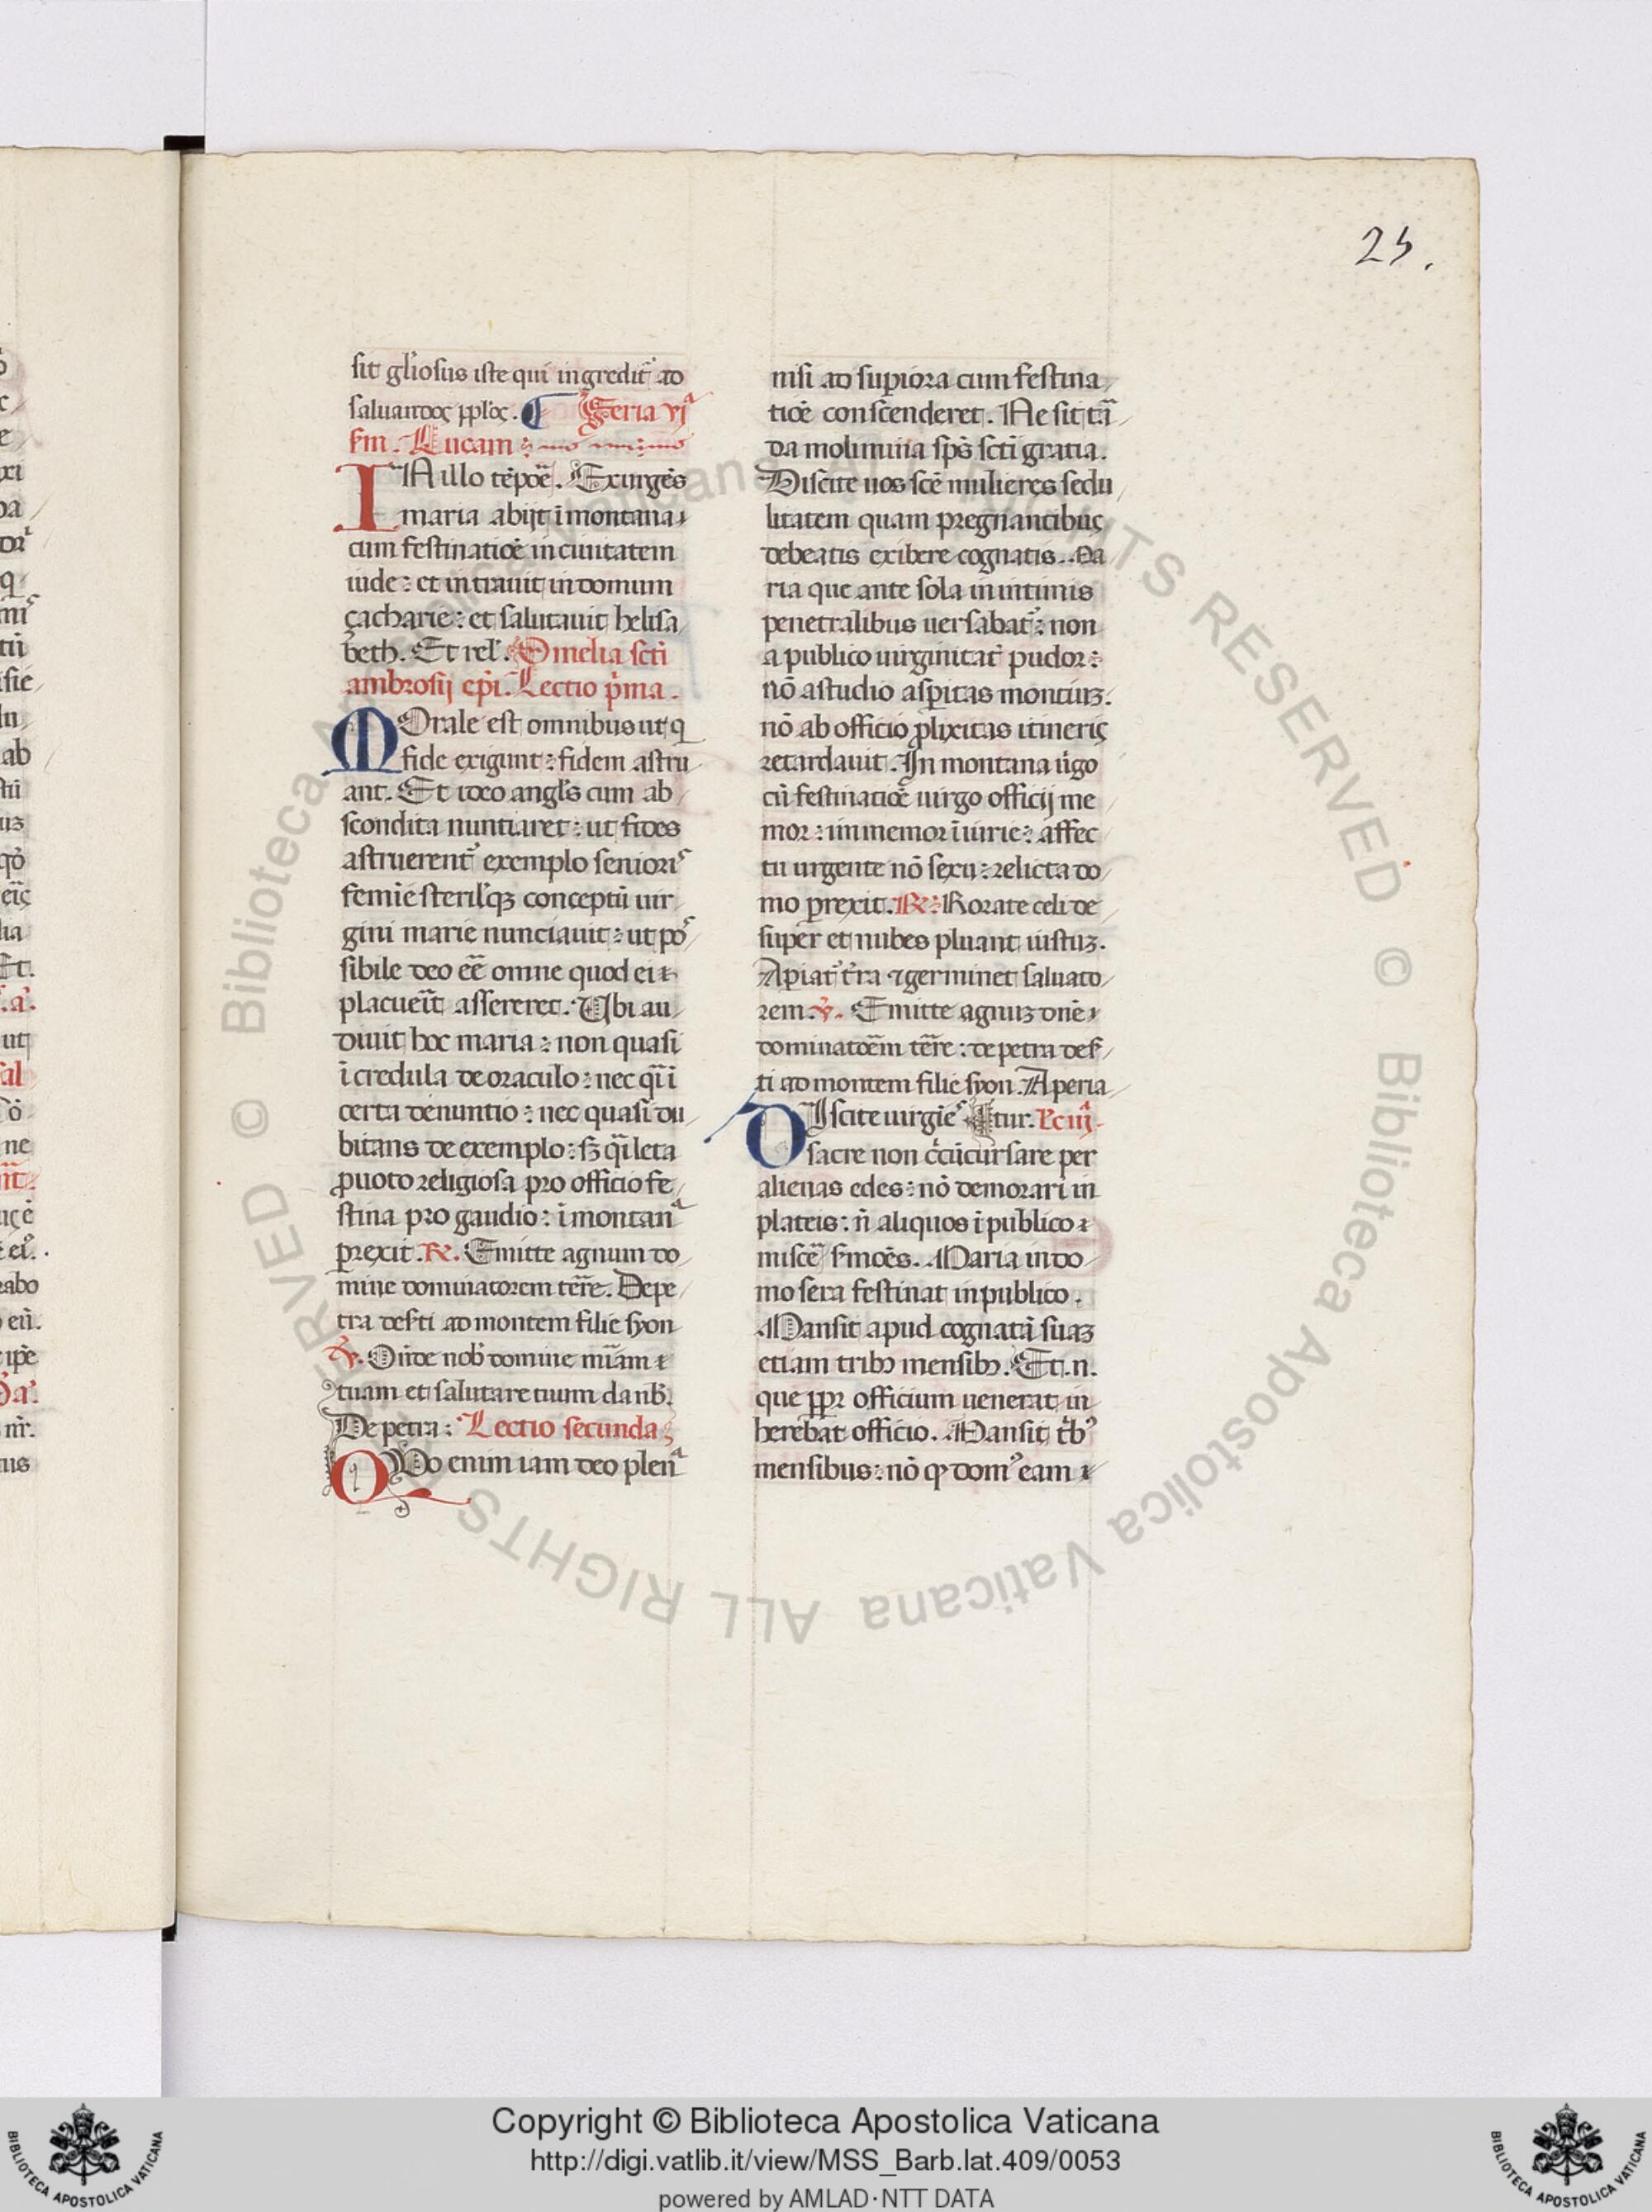 25.
sit gl'iosus iste qui ingredit̉ ad
saluandos pplos. ¶ Feria vjᵃ
s̄m. Lucam:
IN illo tēpoē. Exurgēs
maria abijt ī montana
cum festinatiōe in ciuitatem
iude: et intrauit in domum
çacharie: et salutauit helisa
beth. Et rel'. Omelia scti
ambrosij ep̄i. Lectio p̄ma.
MOrale est omnibus ut q
fidē exigunt: fidem astru
ant. Et ideo angl's cum ab
scondita nuntiaret: ut fides
astruerent̉ exemplo senioris
femīe sterilꝗꝫ conceptū uir
gini marie nunciauit: ut pos
sibile deo eē omne quod ei
placuer̄it assereret. Ubi au
diuit hoc maria: non quasi
īcredula de oraculo: nec q̄i ī
certa de nuntio: nec quasi du
bitans de exemplo: sꝫ q̄i leta
ꝓ uoto religiosa pro officio fe
stina pro gaudio: ī montanᵃ
ꝑrexit. ℟. Emitte agnum do
mine dominatorem terr̄e. De pe
tra desti ad montem filie syon
℣. Onde nob' domine mīam
tuam et salutare tuum da nb'.
De petra: Lectio secunda
QUo enim iam deo plenᵃ
nisi ad supiora cum festina
tiōe conscenderet. Ne scit tᵃ
da molimina sp̄s scti gratia.
Discite uos scē mulieres sedu
litatem quam pregnantibus
debeatis exibere cognatis. Ma
ria que ante sola in intimis
penetralibus uersabat̉: non
a publico uirginitat̉ pudor:
nō a studio asꝑitas montiuꝫ.
nō ab officio ꝓlixitas itineris
retardauit. In montana ūgo
cū festinatiōe uirgo officij me
mor: inmemor īiurie: affec
tu urgente nō sexu: relicta do
mo ꝑrexit. ℟: Rorate celi de
super et nubes pluant iustuꝫ.
Apiat̉ t̉ra ⁊ germinet saluato
rem. ℣. Emitte agnuꝫ dn̄e
dominatōēm terr̄e: de petra des
ti ad montem filie syon. Aperia
DIscite uirgīes tur. Lc̄ iijᵃ
sacre non c̄cūcursare per
alienas edes: nō demorari in
plateis: n̄ aliquos ī publico
miscē s̄moēs. Maria in do
mo sera festinat in publico.
Mansit apud cognatā suaꝫ
etiam tribꝫ mensibꝫ. Et .n.
que ppꝛ officium uenerat in
herebat officio. Mansit tb'
mensibus: nō ꝙ dom' eam
Copyright © Biblioteca Apostolica Vaticana
http://digi.vatlib.it/view/MSS_Barb.lat.409/0053
powered by AMLAD·NTT DATA
BIBLIOTECA APOSTOLICA VATICANA
BIBLIOTECA APOSTOLICA VATICANA
© Biblioteca Apostolica Vaticana ALL RIGHTS RESERVED © Biblioteca Apostolica Vaticana ALL RIGHTS RESERVED